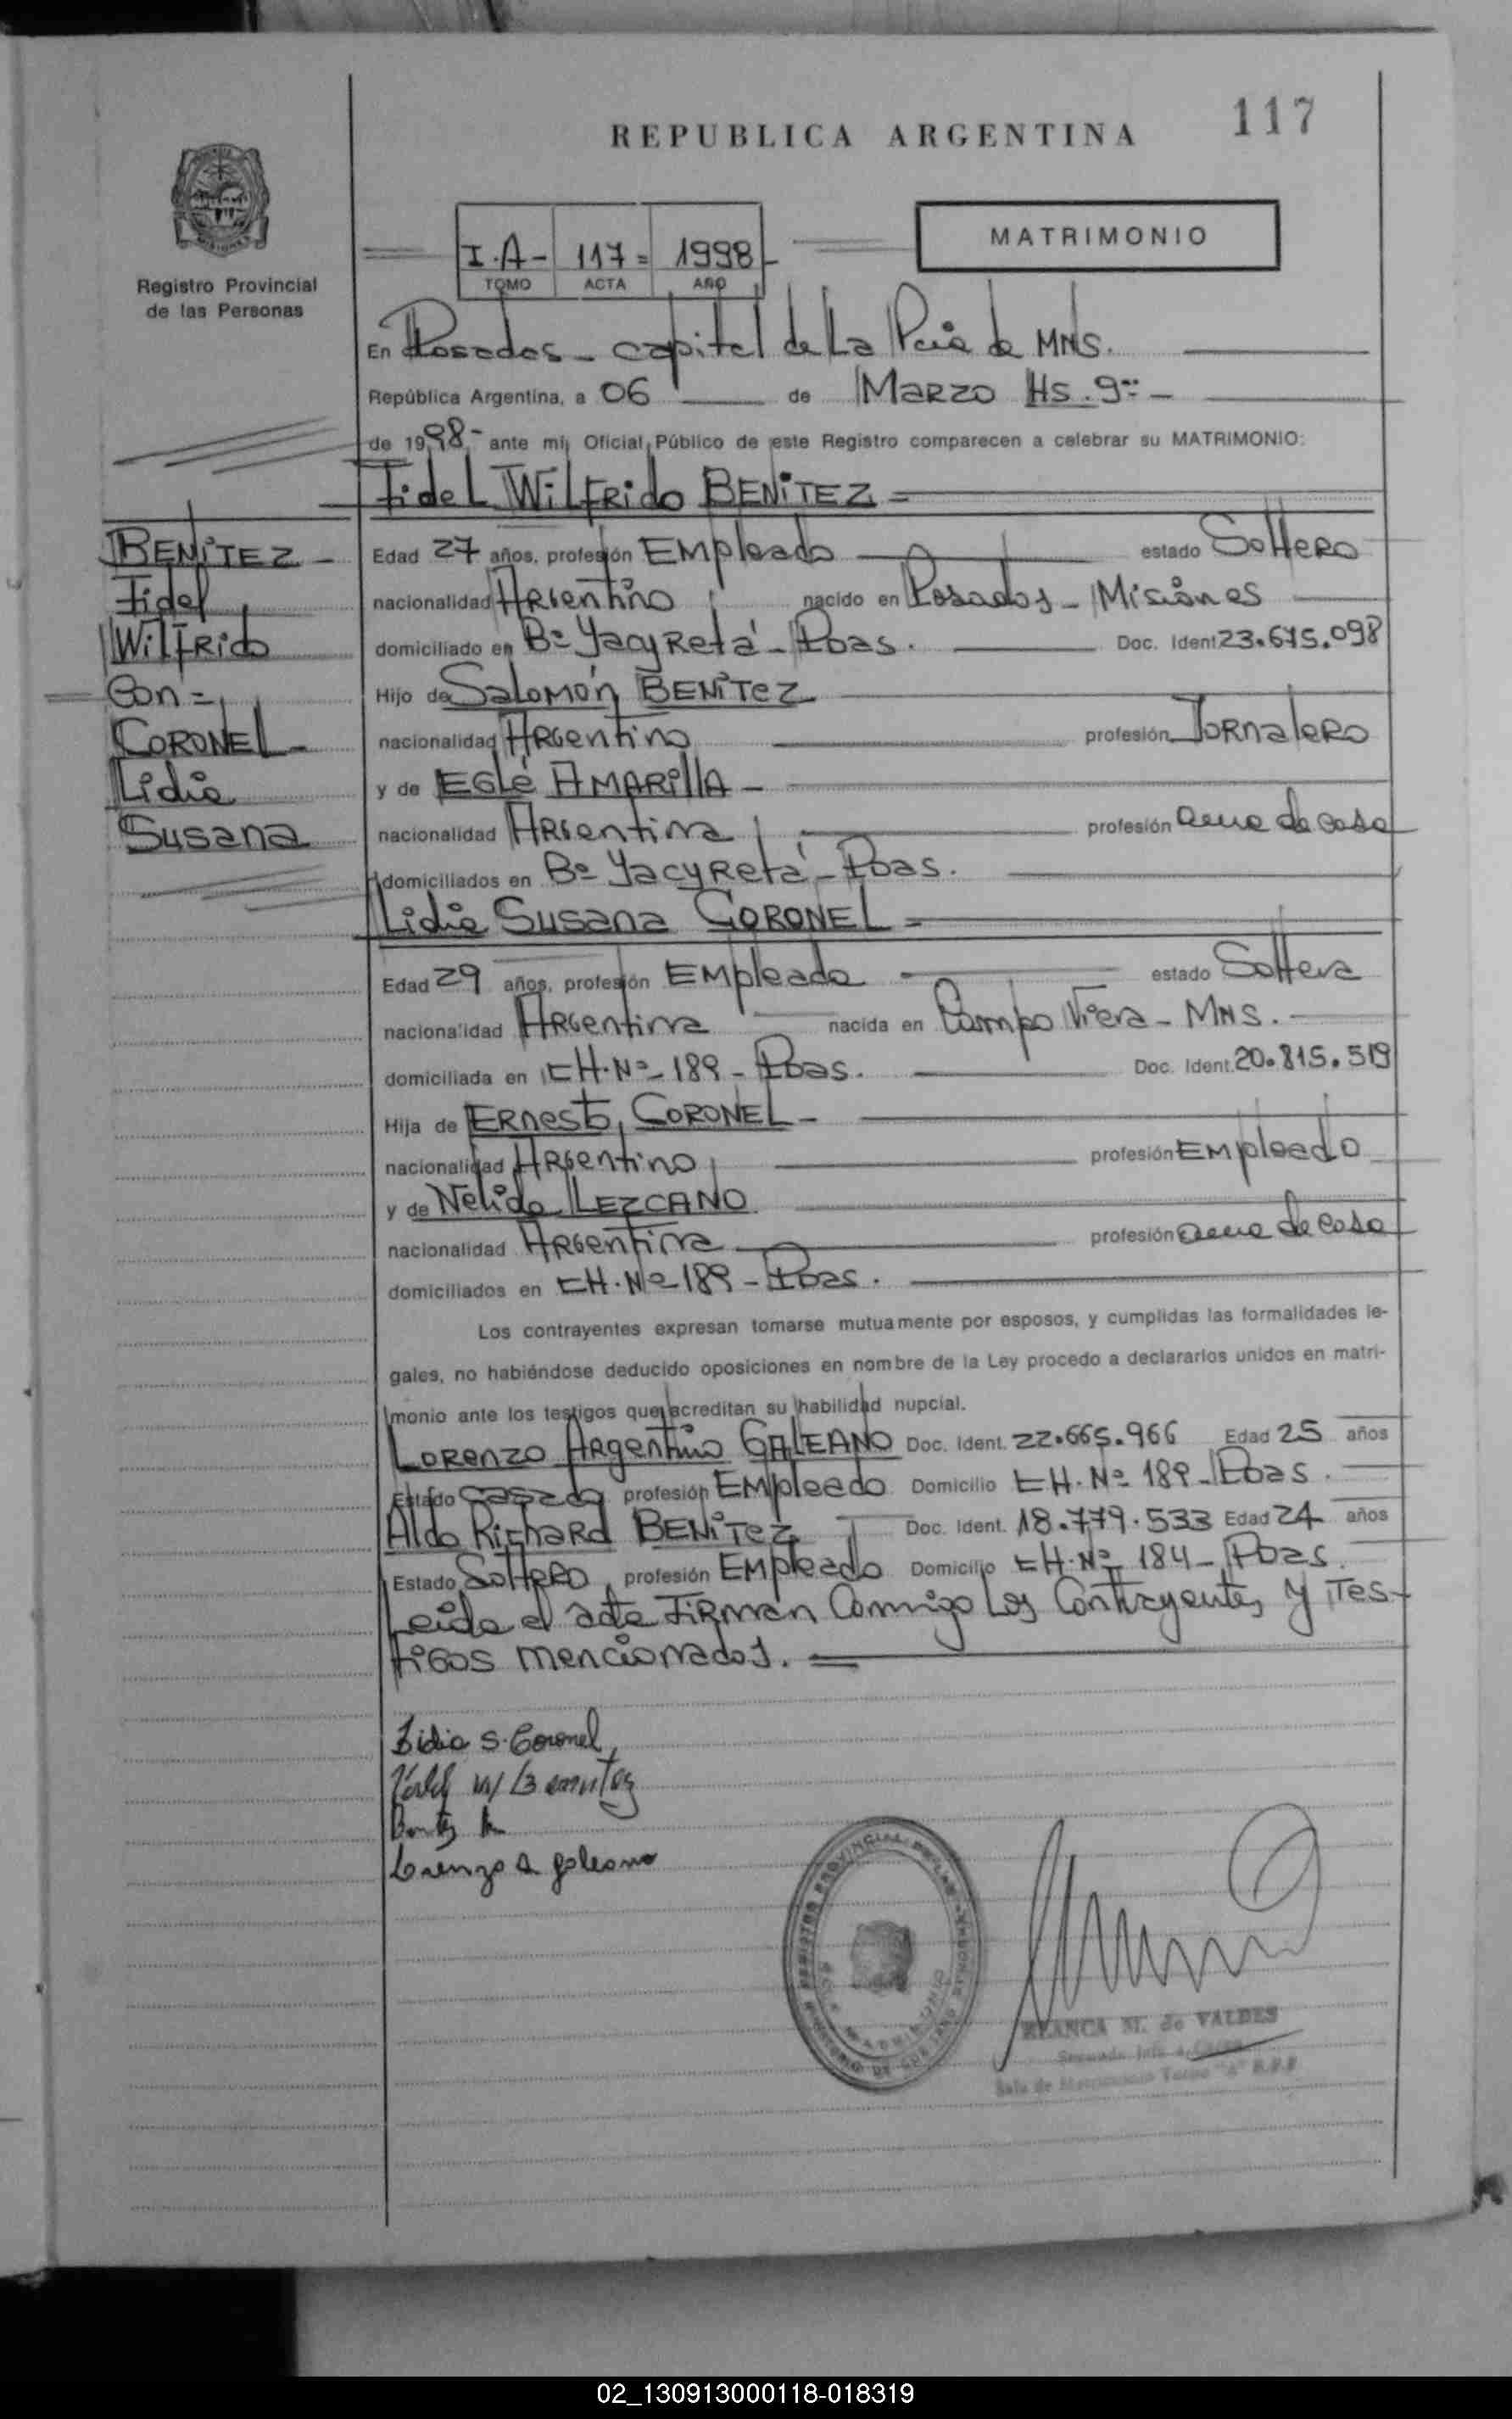 117
REPUBLICA ARGENTINA
MISIONES
Registro Provincial
de las Personas
I.A- 117= 1998-
TOMO ACTA AÑO
MATRIMONIO
En Posadas - capital de La Pcia de MNS.
República Argentina, a 06 de Marzo Hs. 9:: -
de 1998- ante mi, Oficial Público de este Registro comparecen a celebrar su MATRIMONIO:
Fidel WiLFRido BENITEZ =
BENITEZ -
Fidel
WilFRido
Con =
CORONEL -
Lidia
Susana
Edad 27 años, profesión EMpleado estado SolteRo
nacionalidad ARgentino nacido en Posadas - Misiones
domiciliado en Bº YacyRetá - Pdas. Doc. Ident. 23.675.098
Hijo de Salomón BENITEZ
nacionalidad ARgentino profesión JoRnaleRo
y de EGLé AMARillA -
nacionalidad ARgentina profesión ama de casa
domiciliados en Bº YacyRetá - Pdas.
Lidia Susana CORONEL =
Edad 29 años, profesión EMpleada estado Soltera
nacionalidad ARgentina nacida en Campo Viera - MNS.
domiciliada en CH. Nº - 189 - Pdas. Doc. Ident. 20.815.519
Hija de ERnesto CORONEL -
nacionalidad ARgentino profesión EMpleado
y de Nelida LEZCANO
nacionalidad ARgentina profesión ama de casa
domiciliados en CH. Nº - 189 - Pdas.
Los contrayentes expresan tomarse mutuamente por esposos, y cumplidas las formalidades le-
gales, no habiéndose deducido oposiciones en nombre de la Ley procedo a declararlos unidos en matri-
monio ante los testigos que acreditan su habilidad nupcial.
LoRenzo ARgentino GALEANO Doc. Ident. 22.665.966 Edad 25 años
Estado casado profesión EMpleado Domicilio CH. Nº 189 - Pdas.
Aldo Richard BENITEZ Doc. Ident. 18.779.533 Edad 24 años
Estado SolteRo profesión EMpleado Domicilio CH. Nº 184 - Pdas.
Leida el acta FiRman Conmigo Los Contrayentes y Tes-
tigos mencionados.
Lidia S. Coronel
Lorenzo A galeano
BLANCA M. de VALDES
02_130913000118-018319